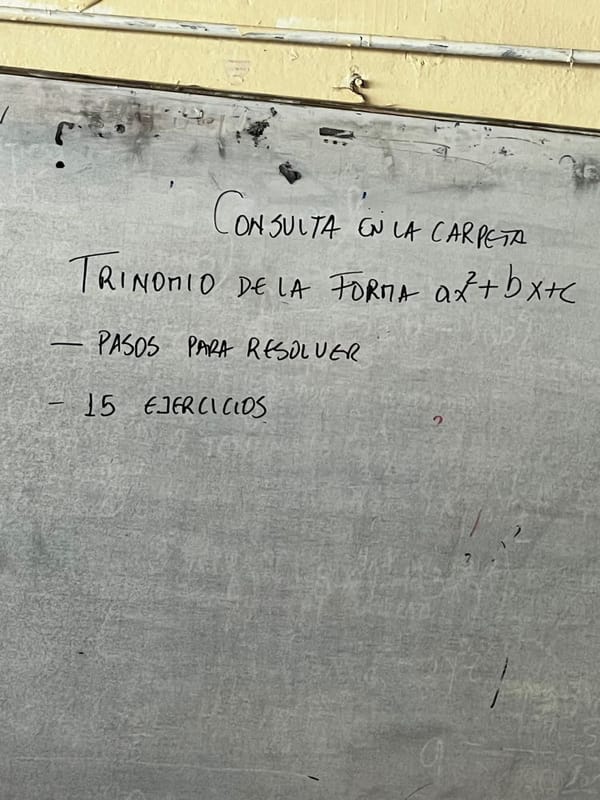 CONSULTA EN LA CARPETA
TRINOMIO DE LA FORMA ax²+bx+c
— PASOS PARA RESOLVER
- 15 EJERCICIOS